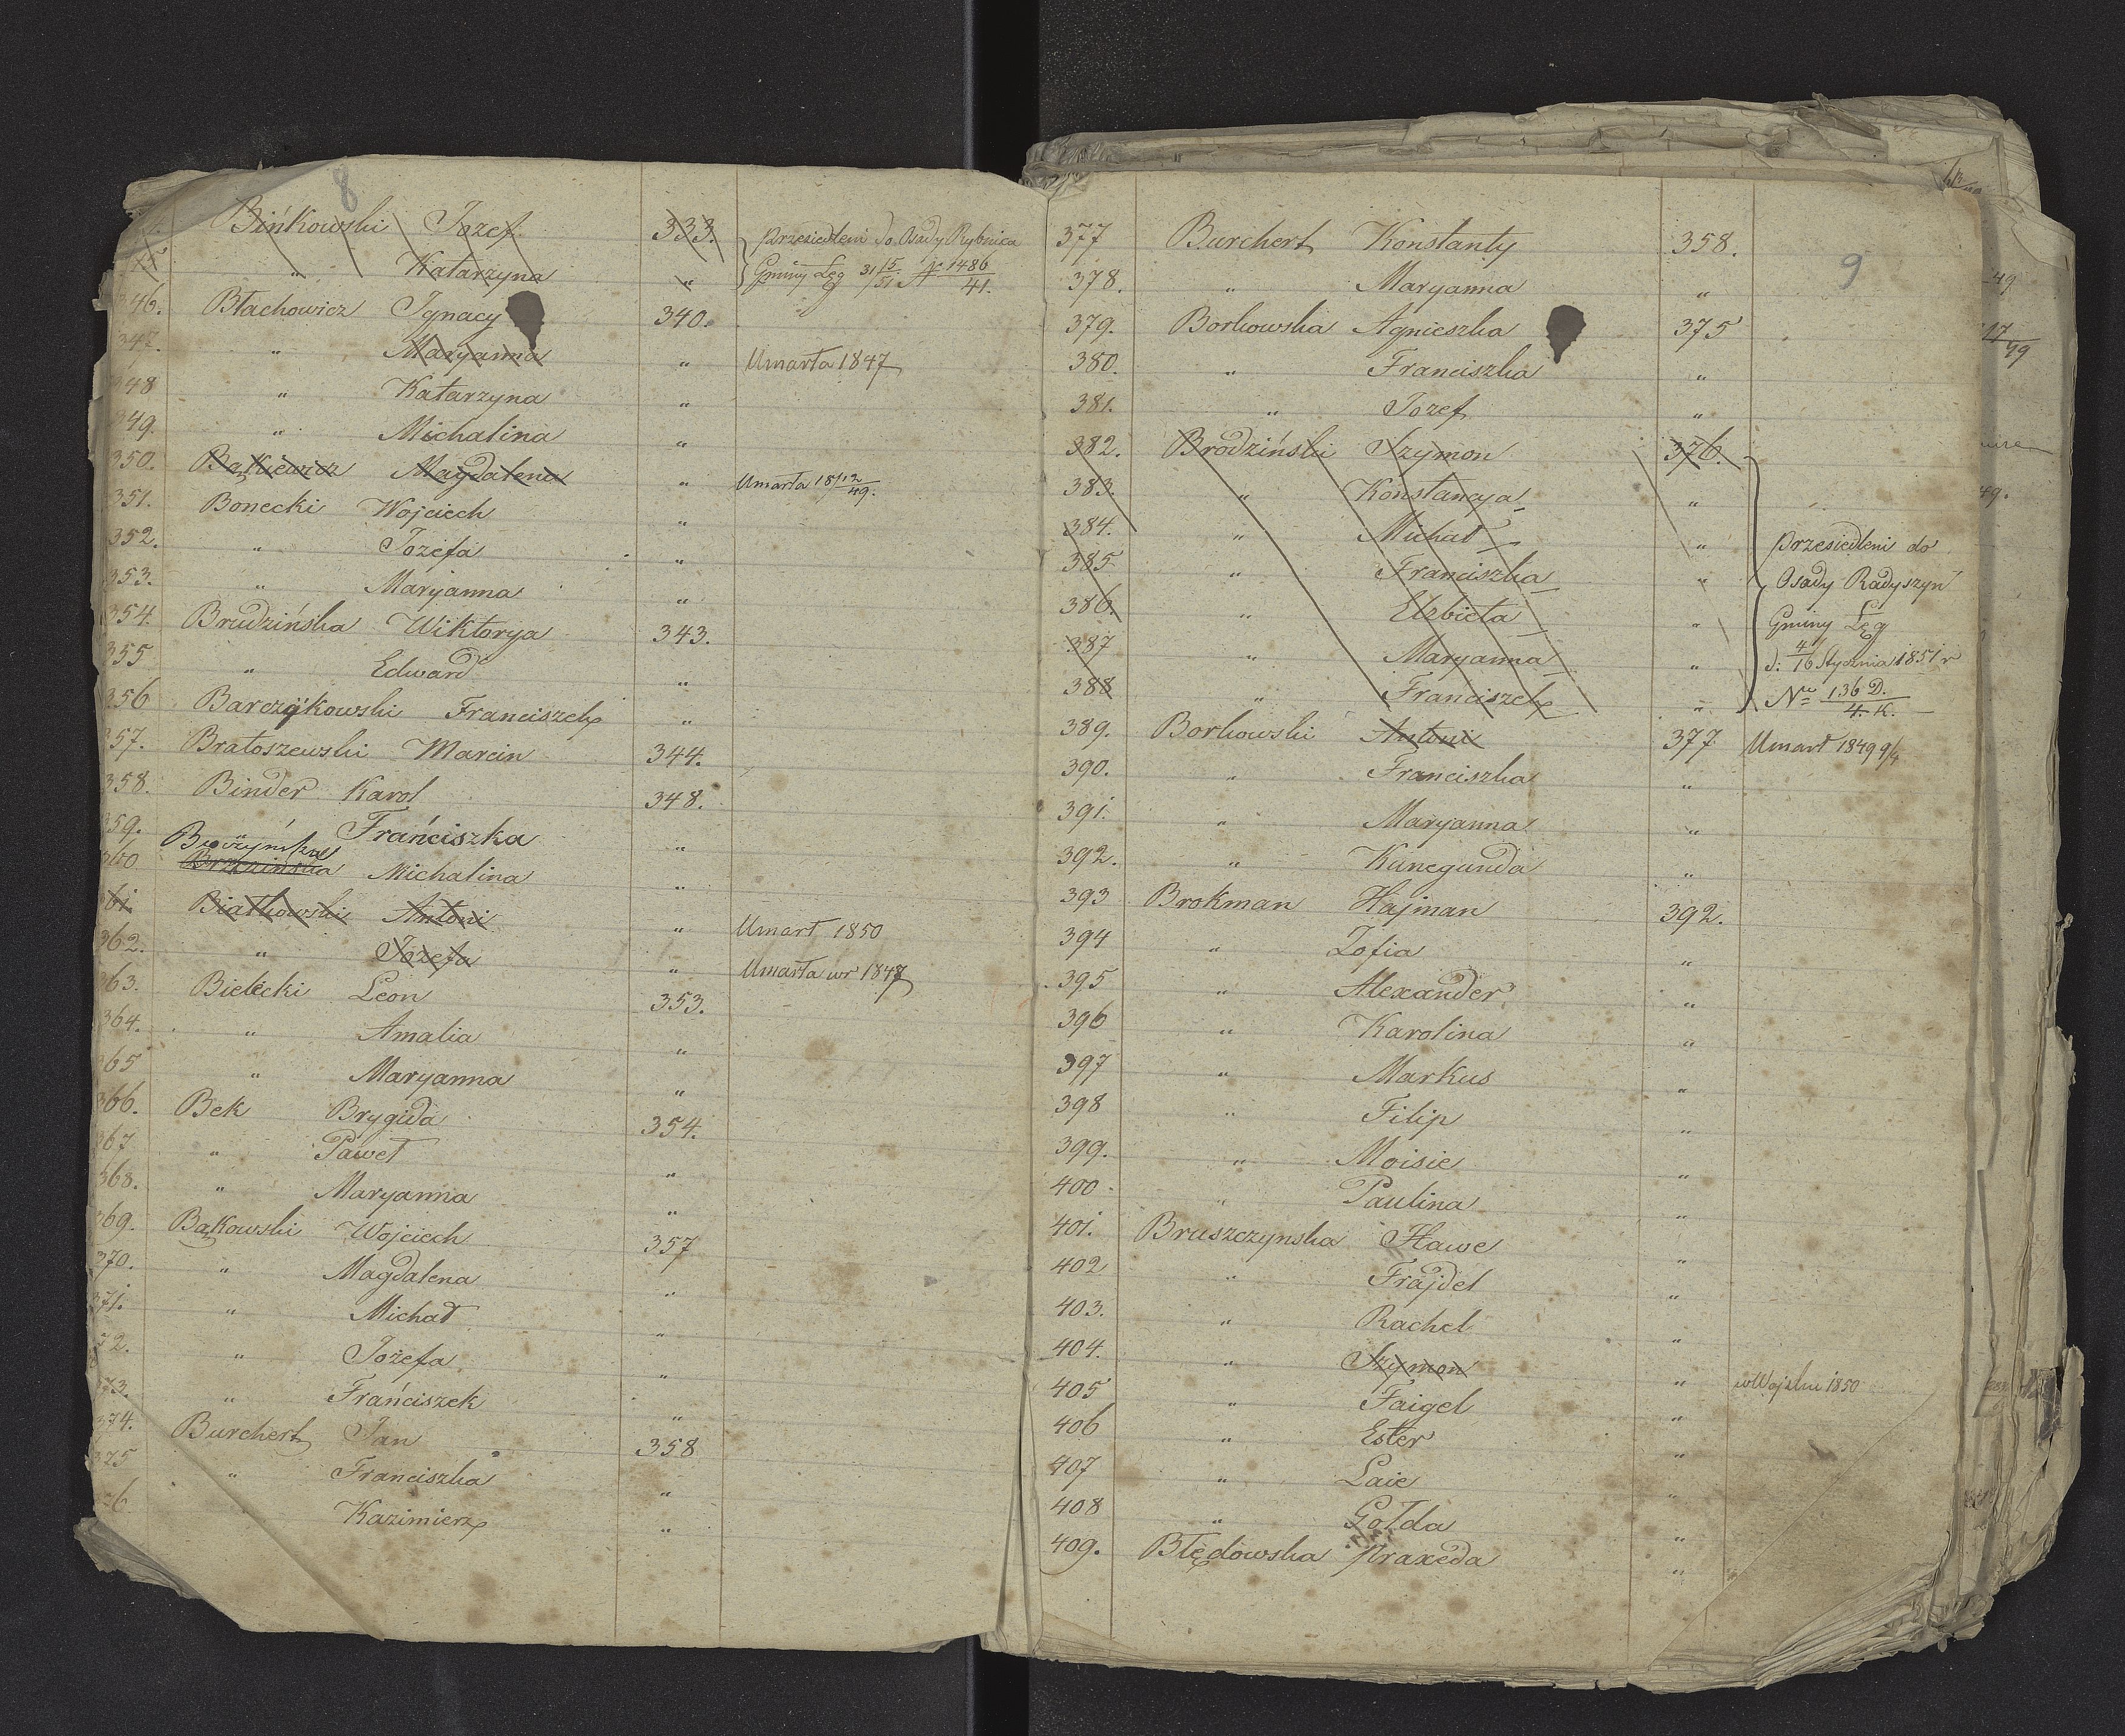 8
Bińkowski Jozef 333. przesiedleni do Osady Rybnica
" Katarzyna " Gminy Łęg 31 15/51 № 1486/41.
346. Błachowicz Ignacy 340.
347. " Maryanna " Umarła 1847
348 " Katarzyna "
349. " Michalina "
350. Bąkiewicz Magdalena " Umarła 18 12/49.
351. Bonecki Wojciech "
352. " Jozefa "
353. " Maryanna "
354. Brudzińska Wiktorya 343.
355 " Edward "
356 Barczykowski Franciszek "
357. Bratoszewski Marcin 344.
358. Binder Karol 348.
359. " Franciszka "
360 Brzezińska Michalina "
361. Białkowski Antoni " Umarł 1850
362. " Jozefa " Umarła w r 1848
363. Bielecki Leon 353.
364. " Amalia "
365 " Maryanna "
366. Bek Brygida 354.
367 " Paweł "
368. " Maryanna "
369. Bąkowski Wojciech 357
370. " Magdalena "
371. " Michał "
372. " Jozefa "
373. " Franciszek "
374. Burchert Jan 358
375 " Franciszka "
376 " Kazimierz "
9
377 Burchert Konstanty 358.
378. " Maryanna "
379. Borkowska Agnieszka 375
380. " Franciszka "
381. " Jozef "
382. Brodziński Szymon 376.
383. " Konstancya "
384. " Michał " przesiedleni do
385 " Franciszka " Osady Radyszyn
386. " Elzbieta " Gminy Łęg
387 " Maryanna " d: 4/16 Stycznia 1851 r
388 " Franciszek " No 136 D./4. K.
389. Borkowski Antoni 377 Umarł 1849 9/4
390. " Franciszka "
391. " Maryanna "
392. " Kunegunda "
393 Brokman Hajman 392.
394 " Zofia "
395 " Alexander "
396 " Karolina "
397 " Markus "
398 " Filip "
399. " Moisie "
400 " Paulina "
401. Bruszczynska Hawe "
402 " Frajdel "
403. " Rachel "
404. " Szymon " w Wojsku 1850
405 " Faigel "
406 " Ester "
407 " Laie "
408 " Gołda "
409. Błędowska Praxeda "